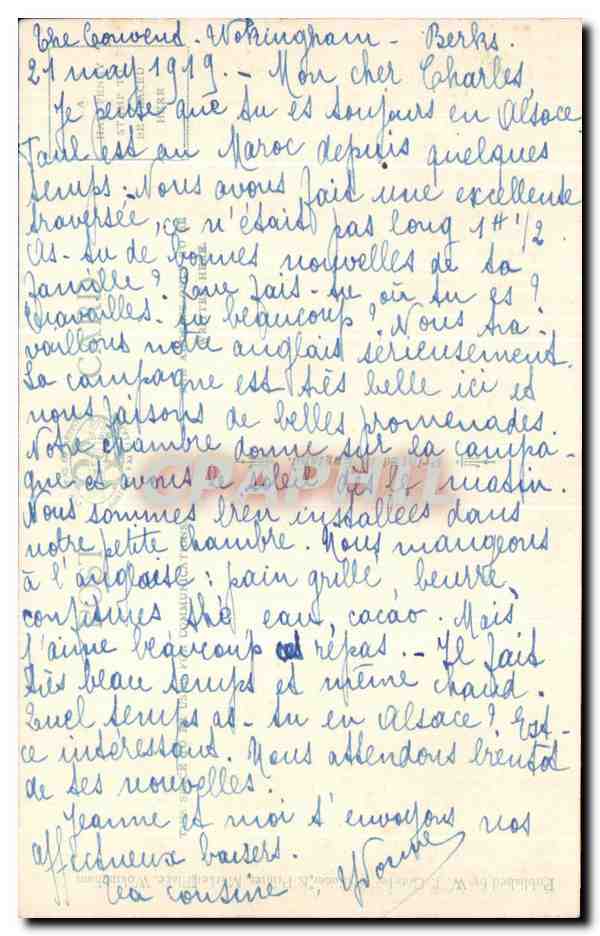 The Convent - Wokingham - Berks.
21 may 1919. - Mon cher Charles,
Je pense que tu es toujours en Alsace
Paul est au Maroc depuis quelques
temps. Nous avons fait une excellente
traversée, ce n'était pas long 1H 1/2.
As-tu de bonnes nouvelles de ta
famille? Que fais-tu où tu es?
travailles-tu beaucoup? Nous tra-
vaillons notre anglais sérieusement.
La campagne est très belle ici et
nous faisons de belles promenades.
Notre chambre donne sur la campa-
gne et avons le soleil dès le matin.
Nous sommes bien installées dans
notre petite chambre. Nous mangeons
à l'anglaise: pain grillé beurre
confitures thé eau, cacao. Mais
j'aime beaucoup ces répas. - Il fait
très beau temps et même chaud.
Quel temps as-tu en Alsace? Est-
ce intéressant. Nous attendons bientôt
de tes nouvelles.
Jeanne et moi t'envoyons nos
affectueux baisers.
Ta cousine Yvonne
POST CARD
A HALFPENNY STAMP TO BE PLACED HERE
CPAPHIL